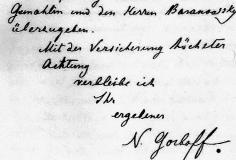 Gemahlin und den Herren Baranowsky
überzugeben.
Mit der Versicherung höchster
Achtung
verbleibe ich
Ihr
ergebener
N. Gorboff.